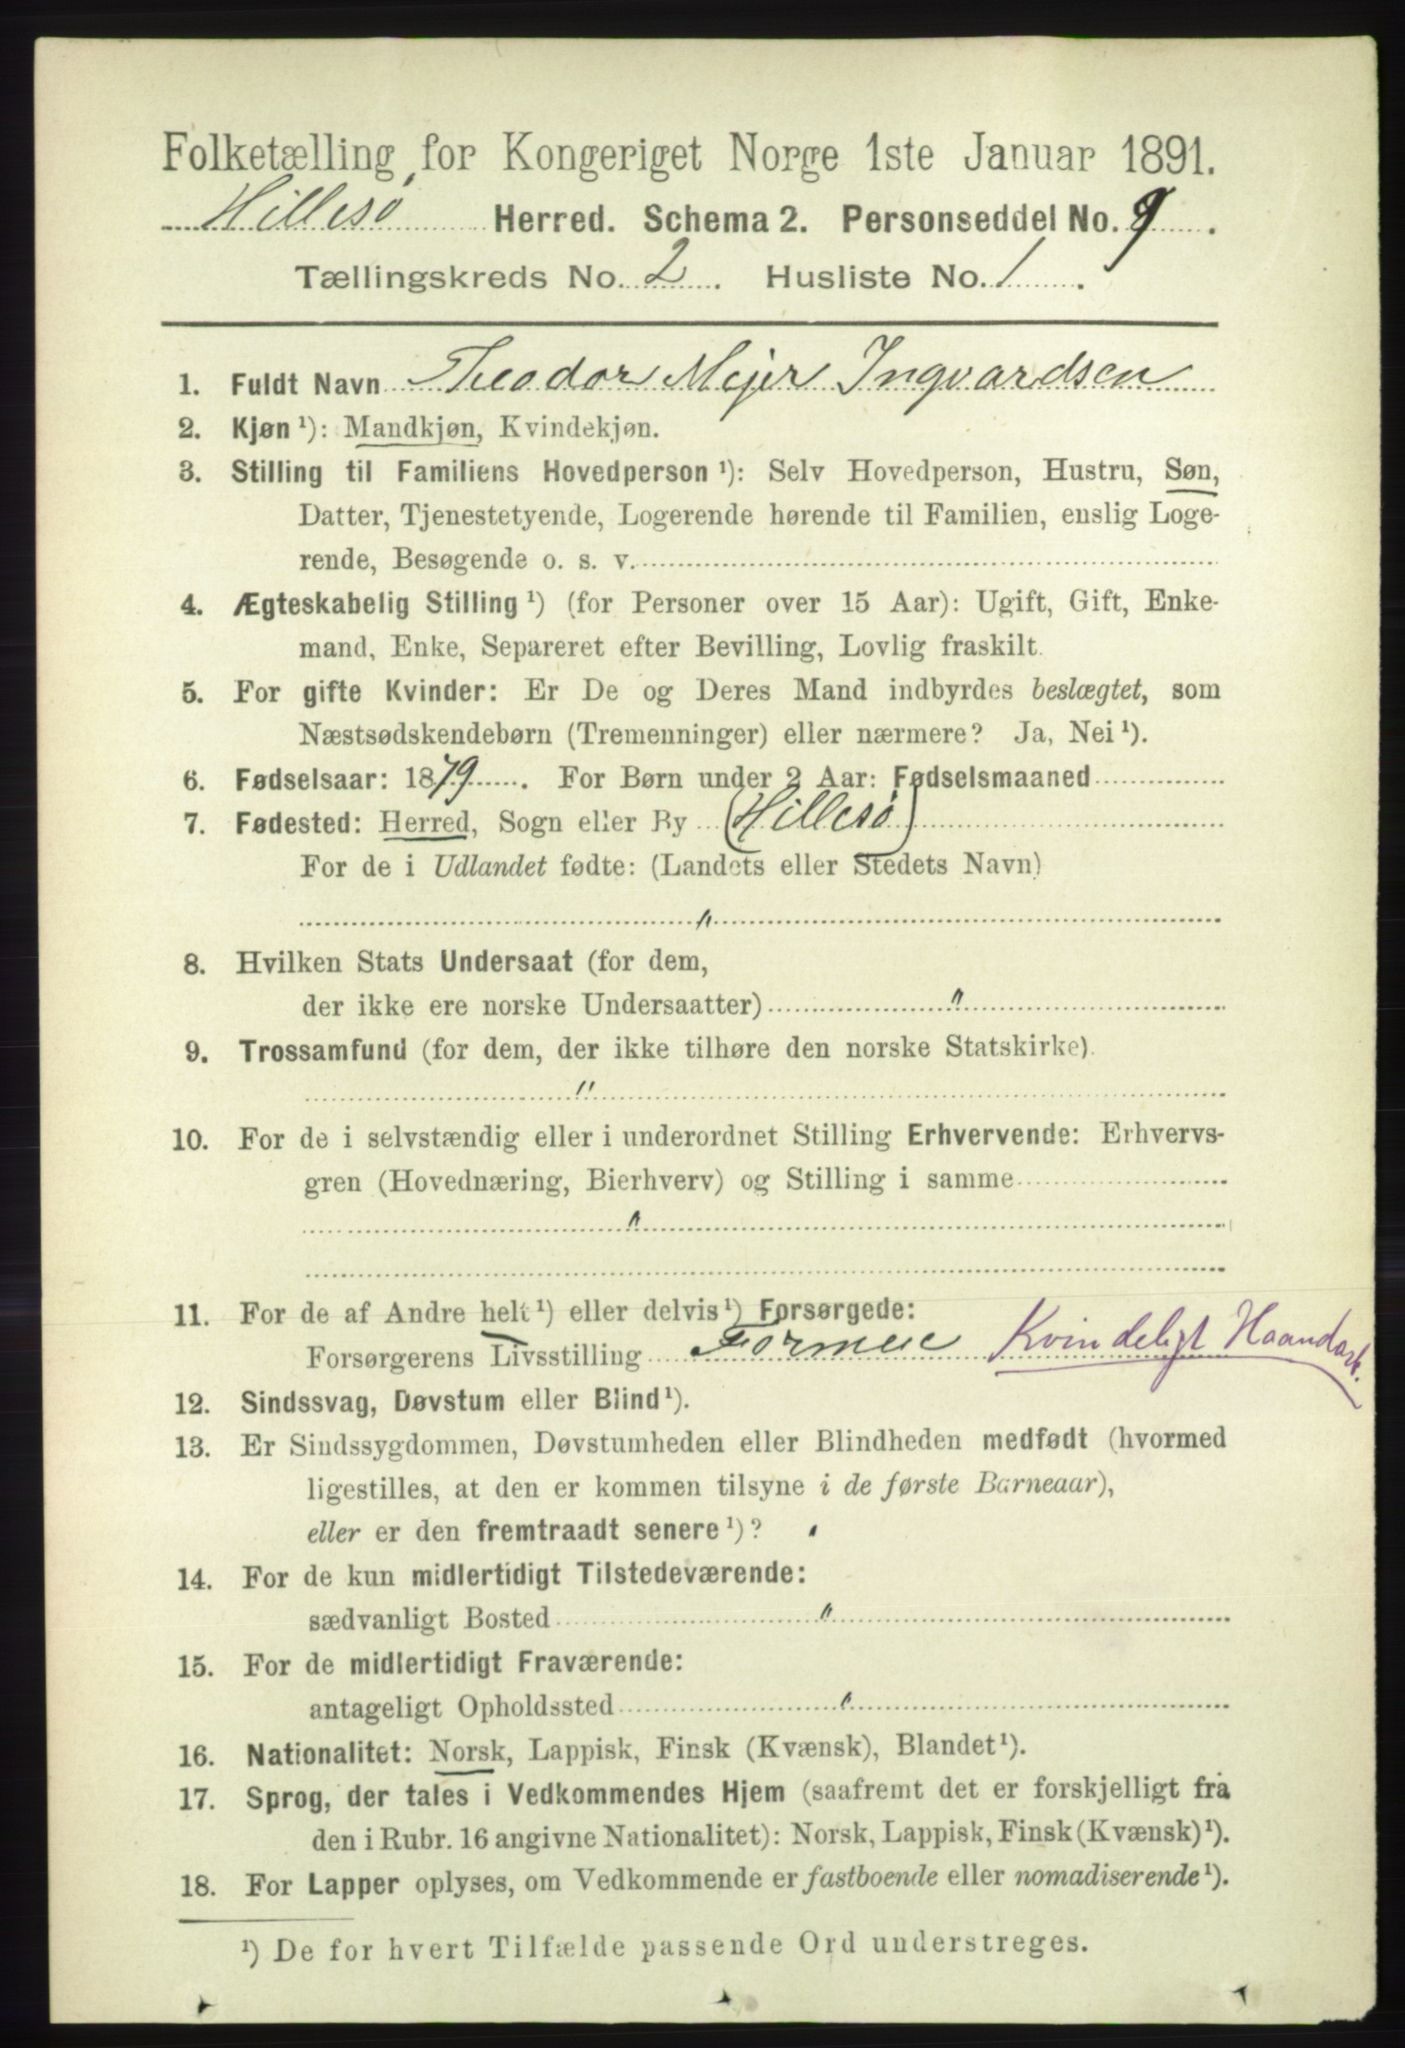 Folketælling for Kongeriget Norge 1ste Januar 1891.
Hillesö Herred. Schema 2. Personseddel No. 9.
Tællingskreds No. 2. Husliste No. 1.
1. Fuldt Navn Theodor Mejer Ingvardsen
2. Kjøn ¹): Mandkjøn, Kvindekjøn.
3. Stilling til Familiens Hovedperson ¹): Selv Hovedperson, Hustru, Søn,
Datter, Tjenestetyende, Logerende hørende til Familien, enslig Loge-
rende, Besøgende o. s. v.
4. Ægteskabelig Stilling ¹) (for Personer over 15 Aar): Ugift, Gift, Enke-
mand, Enke, Separeret efter Bevilling, Lovlig fraskilt.
5. For gifte Kvinder: Er De og Deres Mand indbyrdes beslægtet, som
Næstsødskendebørn (Tremenninger) eller nærmere? Ja, Nei ¹).
6. Fødselsaar: 1879. For Børn under 2 Aar: Fødselsmaaned
7. Fødested: Herred, Sogn eller By (Hillesö)
For de i Udlandet fødte: (Landets eller Stedets Navn)
"
8. Hvilken Stats Undersaat (for dem,
der ikke ere norske Undersaatter) "
9. Trossamfund (for dem, der ikke tilhøre den norske Statskirke).
"
10. For de i selvstændig eller i underordnet Stilling Erhvervende: Erhvervs-
gren (Hovednæring, Bierhverv) og Stilling i samme
"
11. For de af Andre helt ¹) eller delvis ¹) Forsørgede:
Forsørgerens Livsstilling Kvindeligt Haandarb.
12. Sindssvag, Døvstum eller Blind ¹).
13. Er Sindssygdommen, Døvstumheden eller Blindheden medfødt (hvormed
ligestilles, at den er kommen tilsyne i de første Barneaar),
eller er den fremtraadt senere ¹)?
14. For de kun midlertidigt Tilstedeværende:
sædvanligt Bosted "
15. For de midlertidigt Fraværende:
antageligt Opholdssted "
16. Nationalitet: Norsk, Lappisk, Finsk (Kvænsk), Blandet ¹).
17. Sprog, der tales i Vedkommendes Hjem (saafremt det er forskjelligt fra
den i Rubr. 16 angivne Nationalitet): Norsk, Lappisk, Finsk (Kvænsk) ¹).
18. For Lapper oplyses, om Vedkommende er fastboende eller nomadiserende ¹).
¹) De for hvert Tilfælde passende Ord understreges.